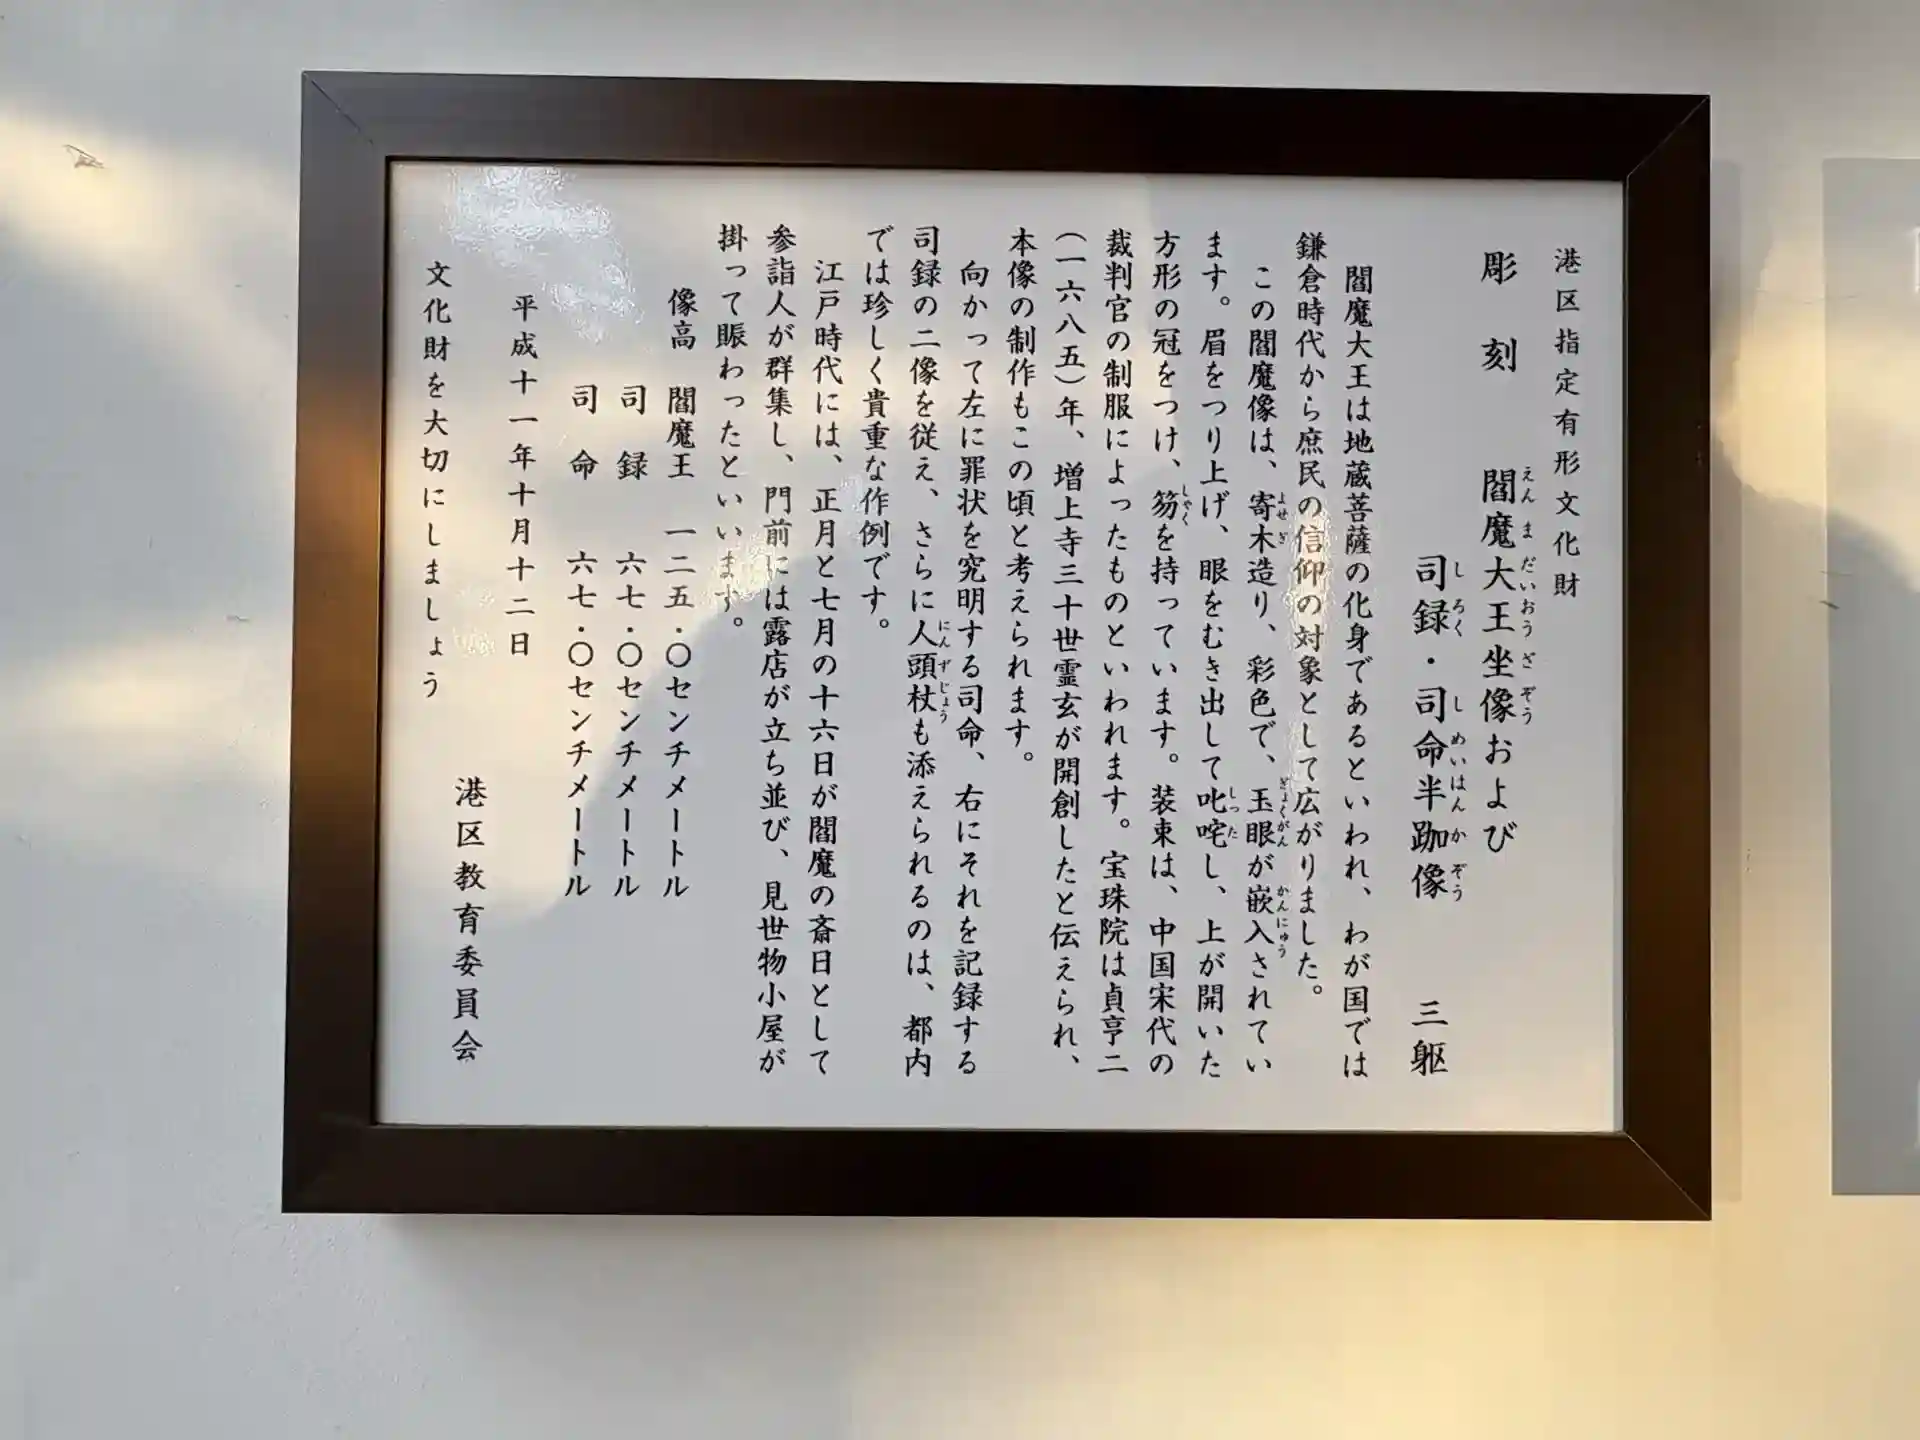 港区指定有形文化財
彫刻 閻魔大王坐像および
えんまだいおうざぞう
司録・司命半跏像 三躯
しろく しめいはんかぞう
閻魔大王は地蔵菩薩の化身であるといわれ、わが国では
鎌倉時代から庶民の信仰の対象として広がりました。
この閻魔像は、寄木造り、彩色で、玉眼が嵌入されてい
よせぎ ぎょくがん かんにゅう
ます。眉をつり上げ、眼をむき出して叱咤し、上が開いた
しった
方形の冠をつけ、笏を持っています。装束は、中国宋代の
しゃく
裁判官の制服によったものといわれます。宝珠院は貞亨二
(一六八五)年、増上寺三十世霊玄が開創したと伝えられ、
本像の制作もこの頃と考えられます。
向かって左に罪状を究明する司命、右にそれを記録する
司録の二像を従え、さらに人頭杖も添えられるのは、都内
にんずじょう
では珍しく貴重な作例です。
江戸時代には、正月と七月の十六日が閻魔の斎日として
参詣人が群集し、門前には露店が立ち並び、見世物小屋が
掛って賑わったといいます。
像高 閻魔王 一二五・〇センチメートル
司録 六七・〇センチメートル
司命 六七・〇センチメートル
平成十一年十月十二日
港区教育委員会
文化財を大切にしましょう